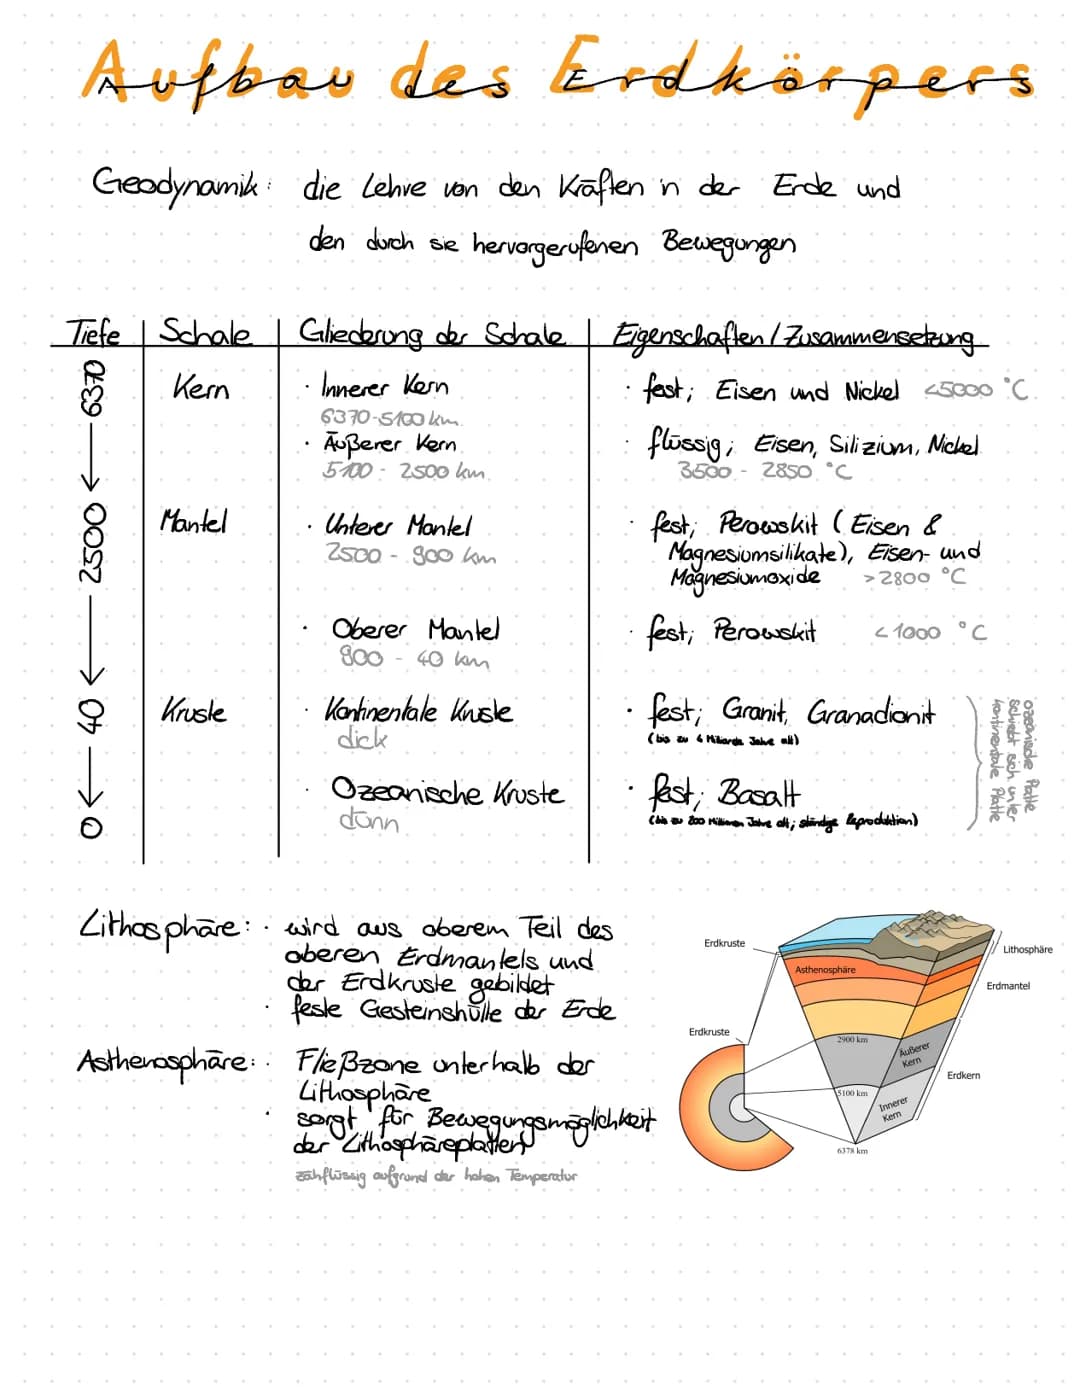 Aufbau des Erdkörpers
Geodynamik: die Lehre von den Kräften in der Erde und
den durch sie hervorgerufenen Bewegungen
Tiefe | Schale | Gliederung der Schale | Eigenschaften / Zusammensetzung
0 ← 40 ← 2500 ← 6370
Kern
· Innerer Kern
6370-5100 km
· fest; Eisen und Nickel <5000 °C
· Äußerer Kern
5100 - 2500 km
· flüssig; Eisen, Silizium, Nickel
3500 - 2850 °C
Mantel
· Unterer Mantel
2500 - 900 km
· fest; Perowskit (Eisen &
Magnesiumsilikate), Eisen- und
Magnesiumoxide >2800 °C
· Oberer Mantel
900 - 40 km
· fest; Perowskit <1000 °C
Kruste
· Kontinentale Kruste
dick
· fest; Granit, Granadionit
(bis zu 4 Miliarde Jahre alt)
· Ozeanische Kruste
dünn
· fest; Basalt
(bis zu 200 Millionen Jahre alt; ständige Reproduktion)
ozeanische Platte
schiebt sich unter
kontinentale Platte
Lithosphäre: · wird aus oberem Teil des
oberen Erdmantels und
der Erdkruste gebildet
· feste Gesteinshülle der Erde
Asthenosphäre: · Fließzone unterhalb der
Lithosphäre
· sorgt für Bewegungsmöglichkeit
der Lithosphäreplatten
zähflüssig aufgrund der hohen Temperatur
Erdkruste
Lithosphäre
Asthenosphäre
Erdmantel
Erdkruste
2900 km
Äußerer
Kern
Erdkern
5100 km
Innerer
Kern
6378 km